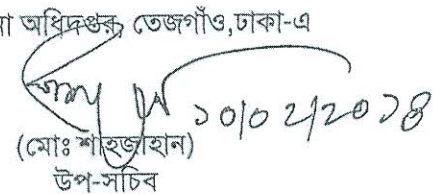 া অধিদপ্তর, তেজগাঁও,ঢাকা-এ
১০/০২/২০১৪
(মোঃ শাহজাহান)
উপ-সচিব